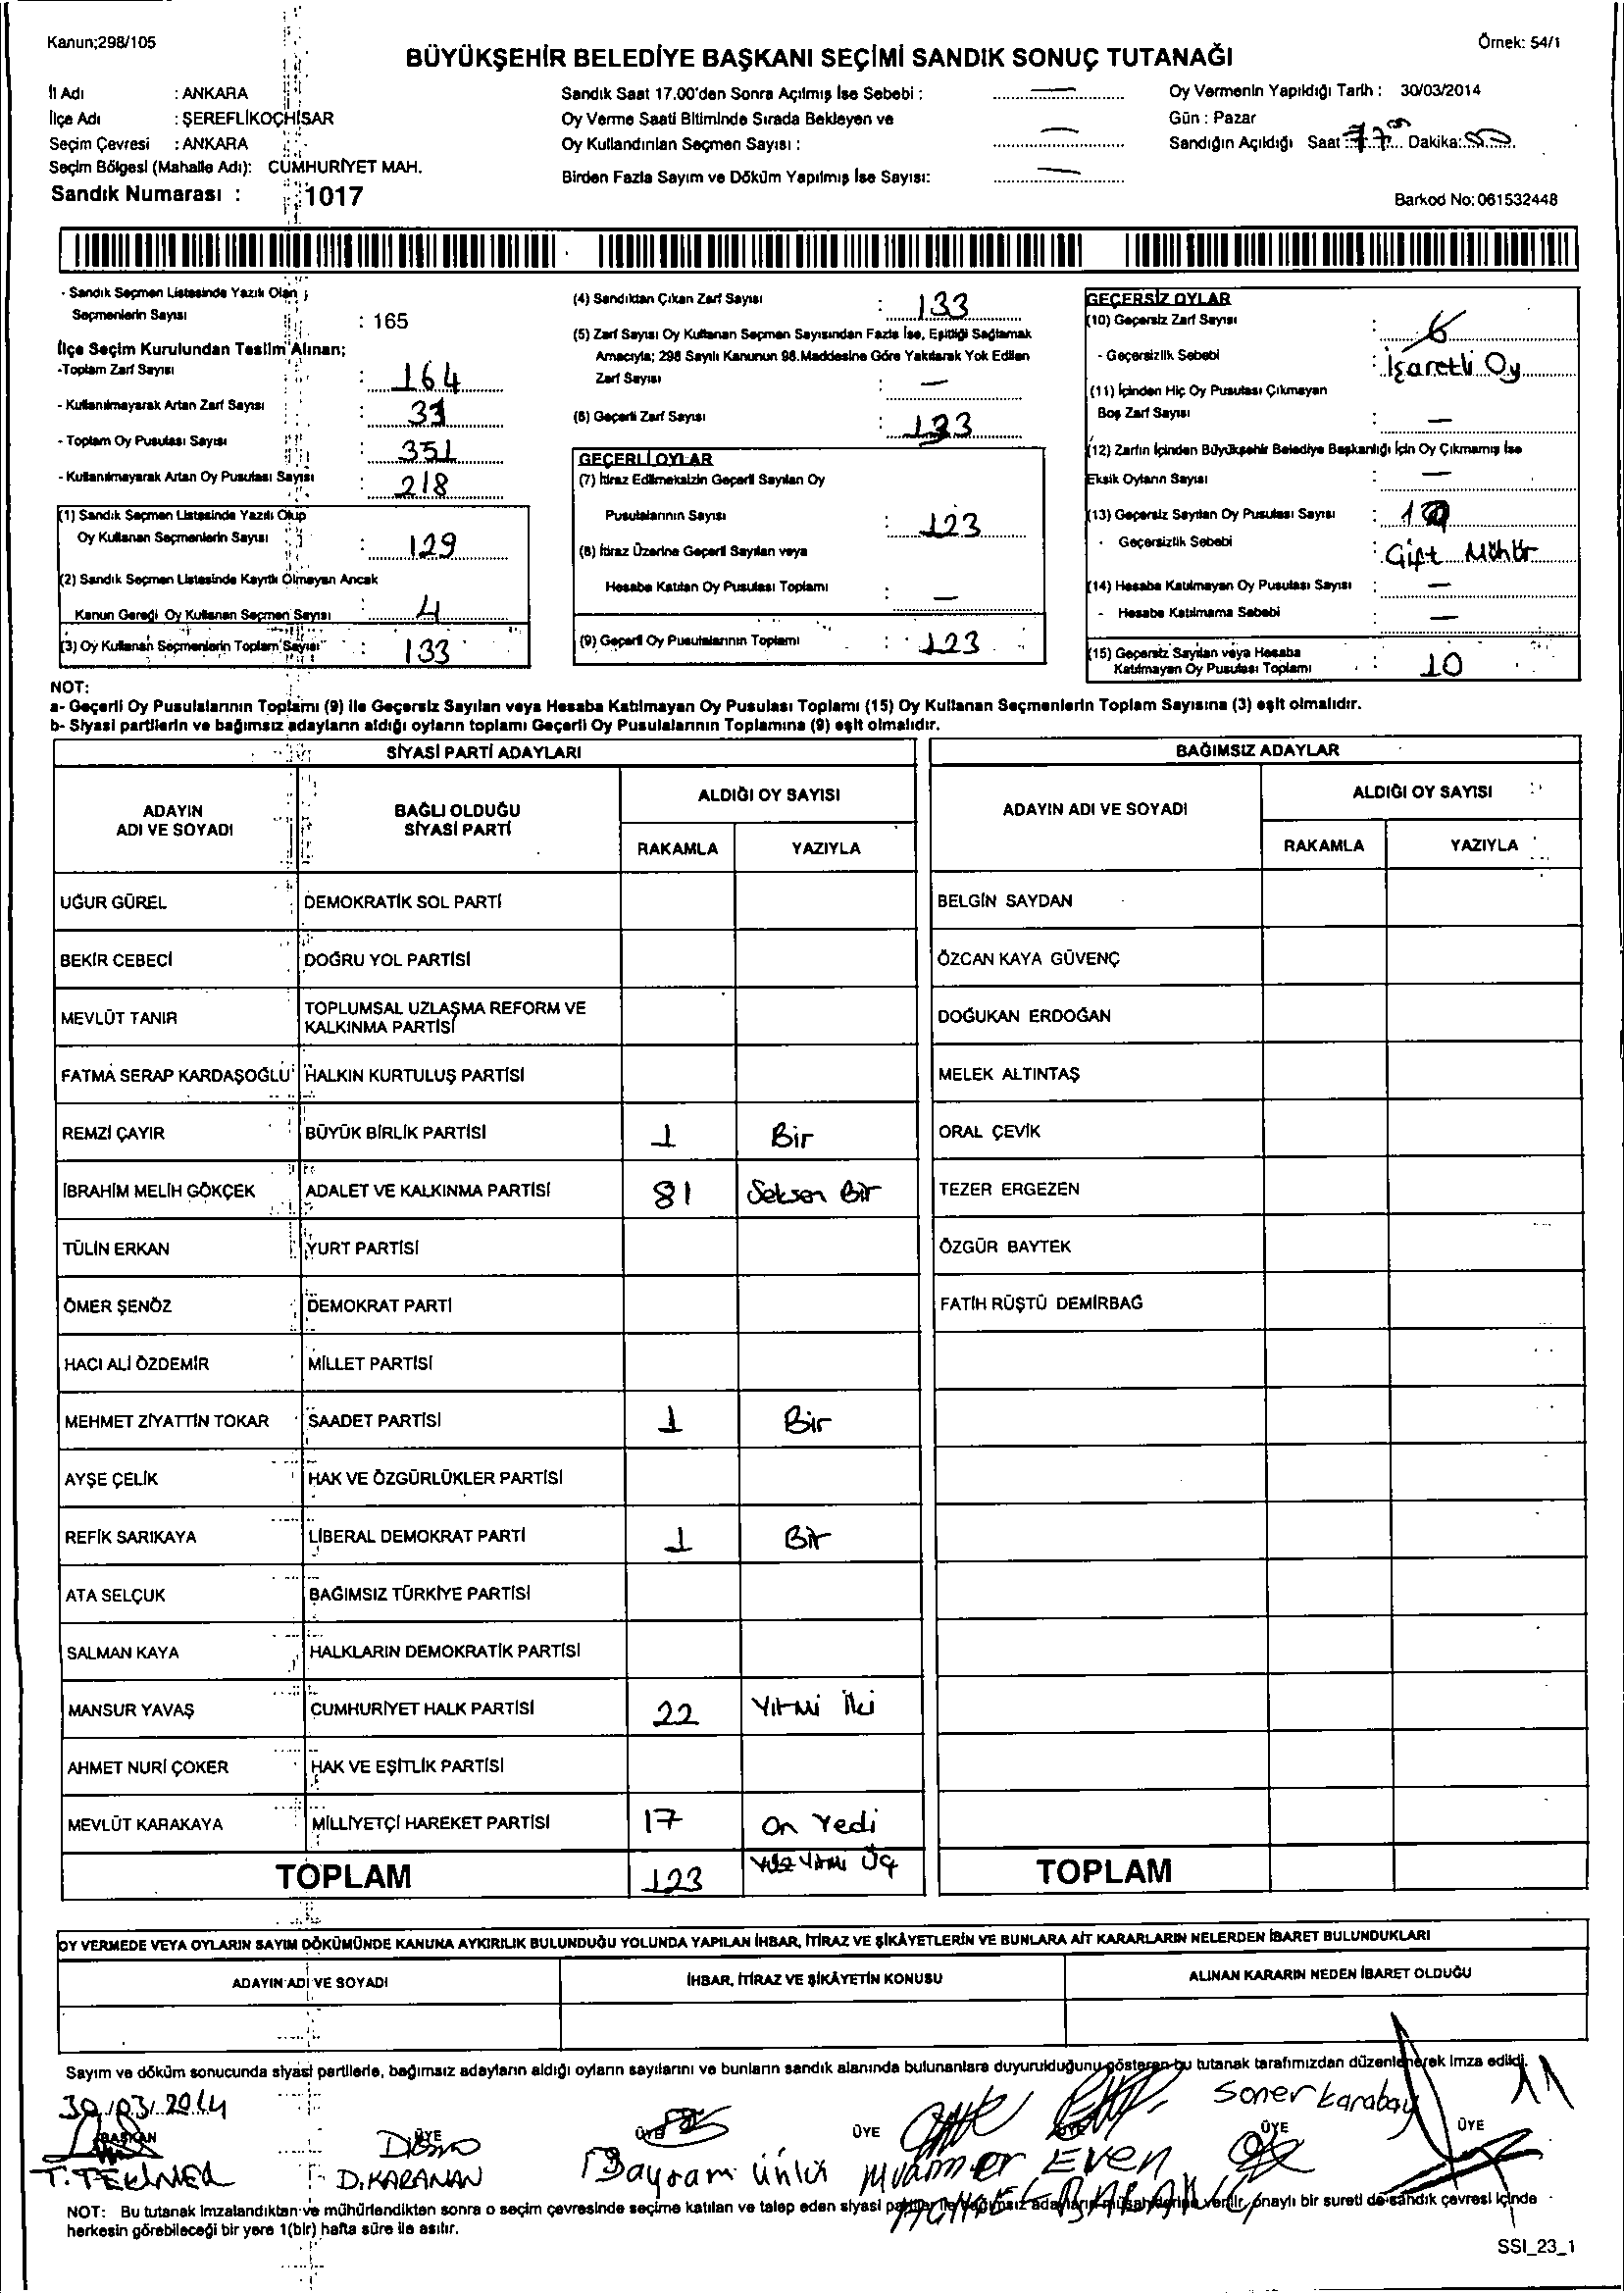 Kanun;298/105
Örnek: 54/1
BÜYÜKŞEHİR BELEDİYE BAŞKANI SEÇİMİ SANDIK SONUÇ TUTANAĞI
İl Adı : ANKARA
İlçe Adı : ŞEREFLİKOÇHİSAR
Seçim Çevresi : ANKARA
Seçim Bölgesi (Mahalle Adı): CUMHURİYET MAH.
Sandık Numarası : 1017
Sandık Saat 17.00'den Sonra Açılmış İse Sebebi : —
Oy Verme Saati Bitiminde Sırada Bekleyen ve
Oy Kullandırılan Seçmen Sayısı : —
Birden Fazla Sayım ve Döküm Yapılmış İse Sayısı: —
Oy Vermenin Yapıldığı Tarih : 30/03/2014
Gün : Pazar
Sandığın Açıldığı Saat Dakika:
Barkod No: 061532448
- Sandık Seçmen Listesinde Yazılı Olan
Seçmenlerin Sayısı : 165
İlçe Seçim Kurulundan Teslim Alınan;
-Toplam Zarf Sayısı : 164
- Kullanılmayarak Artan Zarf Sayısı : 31
- Toplam Oy Pusulası Sayısı : 351
- Kullanılmayarak Artan Oy Pusulası Sayısı : 218
(1) Sandık Seçmen Listesinde Yazılı Olup
Oy Kullanan Seçmenlerin Sayısı : 129
(2) Sandık Seçmen Listesinde Kayıtlı Olmayan Ancak
Kanun Gereği Oy Kullanan Seçmen Sayısı : 4
(3) Oy Kullanan Seçmenlerin Toplam Sayısı : 133
(4) Sandıktan Çıkan Zarf Sayısı : 133
(5) Zarf Sayısı Oy Kullanan Seçmen Sayısından Fazla İse, Eşitliği Sağlamak
Amacıyla; 298 Sayılı Kanunun 98.Maddesine Göre Yakılarak Yok Edilen
Zarf Sayısı : —
(6) Geçerli Zarf Sayısı : 133
GEÇERLİ OYLAR
(7) İtiraz Edilmeksizin Geçerli Sayılan Oy
Pusulalarının Sayısı : 123
(8) İtiraz Üzerine Geçerli Sayılan veya
Hesaba Katılan Oy Pusulası Toplamı : —
(9) Geçerli Oy Pusulalarının Toplamı : 123
GEÇERSİZ OYLAR
(10) Geçersiz Zarf Sayısı : 6
- Geçersizlik Sebebi : İşaretli Oy
(11) İçinden Hiç Oy Pusulası Çıkmayan
Boş Zarf Sayısı : —
(12) Zarfın İçinden Büyükşehir Belediye Başkanlığı İçin Oy Çıkmamış İse
Eksik Oyların Sayısı : —
(13) Geçersiz Sayılan Oy Pusulası Sayısı :
- Geçersizlik Sebebi : Çift Mühür
(14) Hesaba Katılmayan Oy Pusulası Sayısı : —
- Hesaba Katılmama Sebebi —
(15) Geçersiz Sayılan veya Hesaba
Katılmayan Oy Pusulası Toplamı : 10
NOT:
a- Geçerli Oy Pusulalarının Toplamı (9) ile Geçersiz Sayılan veya Hesaba Katılmayan Oy Pusulası Toplamı (15) Oy Kullanan Seçmenlerin Toplam Sayısına (3) eşit olmalıdır.
b- Siyasi partilerin ve bağımsız adayların aldığı oyların toplamı Geçerli Oy Pusulalarının Toplamına (9) eşit olmalıdır.
SİYASİ PARTİ ADAYLARI
ADAYIN ADI VE SOYADI BAĞLI OLDUĞU SİYASİ PARTİ ALDIĞI OY SAYISI
RAKAMLA YAZIYLA
UĞUR GÜREL DEMOKRATİK SOL PARTİ
BEKİR CEBECİ DOĞRU YOL PARTİSİ
MEVLÜT TANIR TOPLUMSAL UZLAŞMA REFORM VE KALKINMA PARTİSİ
FATMA SERAP KARDAŞOĞLU HALKIN KURTULUŞ PARTİSİ
REMZİ ÇAYIR BÜYÜK BİRLİK PARTİSİ 1 Bir
İBRAHİM MELİH GÖKÇEK ADALET VE KALKINMA PARTİSİ 81 Seksen Bir
TÜLİN ERKAN YURT PARTİSİ
ÖMER ŞENÖZ DEMOKRAT PARTİ
HACI ALİ ÖZDEMİR MİLLET PARTİSİ
MEHMET ZİYATTİN TOKAR SAADET PARTİSİ 1 Bir
AYŞE ÇELİK HAK VE ÖZGÜRLÜKLER PARTİSİ
REFİK SARIKAYA LİBERAL DEMOKRAT PARTİ 1 Bir
ATA SELÇUK BAĞIMSIZ TÜRKİYE PARTİSİ
SALMAN KAYA HALKLARIN DEMOKRATİK PARTİSİ
MANSUR YAVAŞ CUMHURİYET HALK PARTİSİ 22 Yirmi İki
AHMET NURİ ÇOKER HAK VE EŞİTLİK PARTİSİ
MEVLÜT KARAKAYA MİLLİYETÇİ HAREKET PARTİSİ 17 On Yedi
TOPLAM 123 Yüz Yirmi Üç
BAĞIMSIZ ADAYLAR
ADAYIN ADI VE SOYADI ALDIĞI OY SAYISI
RAKAMLA YAZIYLA
BELGİN SAYDAN
ÖZCAN KAYA GÜVENÇ
DOĞUKAN ERDOĞAN
MELEK ALTINTAŞ
ORAL ÇEVİK
TEZER ERGEZEN
ÖZGÜR BAYTEK
FATİH RÜŞTÜ DEMİRBAĞ
TOPLAM
OY VERMEDE VEYA OYLARIN SAYIM DÖKÜMÜNDE KANUNA AYKIRILIK BULUNDUĞU YOLUNDA YAPILAN İHBAR, İTİRAZ VE ŞİKÂYETLERİN VE BUNLARA AİT KARARLARIN NELERDEN İBARET BULUNDUKLARI
ADAYIN ADI VE SOYADI İHBAR, İTİRAZ VE ŞİKÂYETİN KONUSU ALINAN KARARIN NEDEN İBARET OLDUĞU
Sayım ve döküm sonucunda siyasi partilerle, bağımsız adayların aldığı oyların sayılarını ve bunların sandık alanında bulunanlara duyurulduğunu gösteren bu tutanak tarafımızdan düzenlenerek imza edildi.
30/03/2014
Soner Karabay
BAŞKAN ÜYE ÜYE ÜYE ÜYE ÜYE ÜYE
T. TEKİNER D. KARANAN Bayram ünlü Muammer Even
NOT: Bu tutanak imzalandıktan ve mühürlendikten sonra o seçim çevresinde seçime katılan ve talep eden siyasi partiler ile bağımsız adayların müşahitlerine verilir, onaylı bir sureti de sandık çevresi içinde
herkesin görebileceği bir yere 1(bir) hafta süre ile asılır.
SSI_23_1